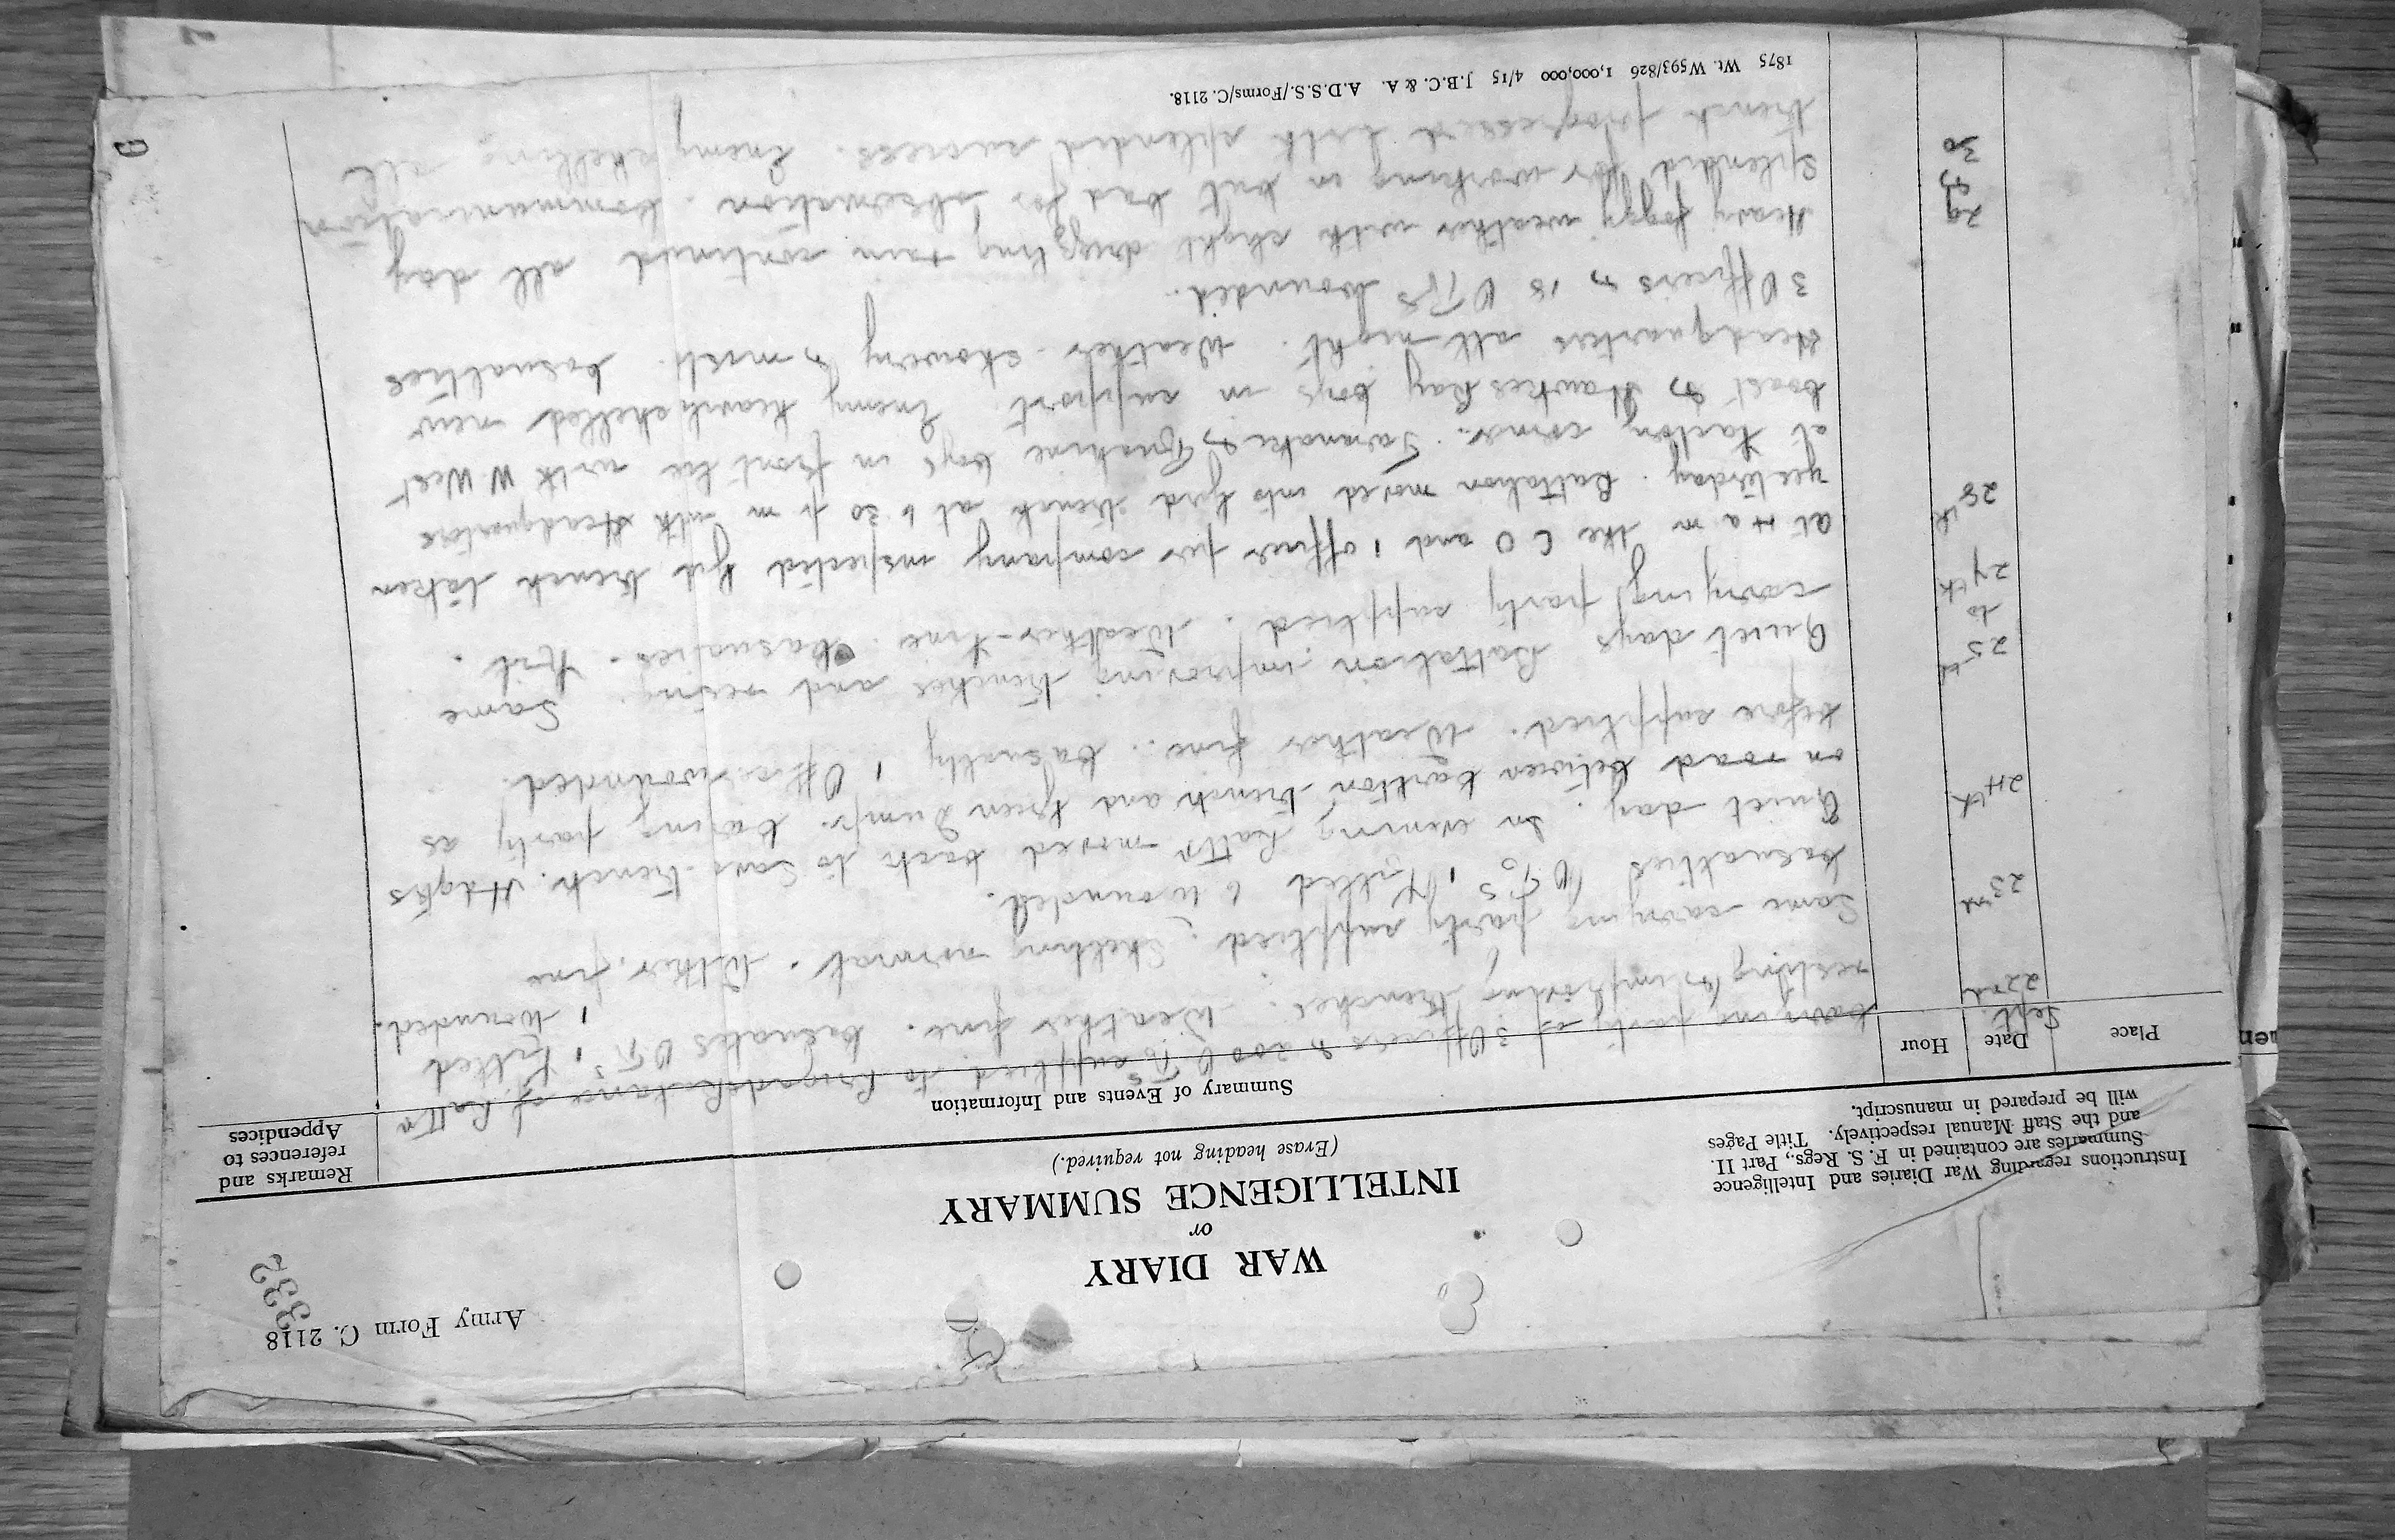 Army Form C. 2118
332
WAR DIARY
or
INTELLIGENCE SUMMARY
(Erase heading not required.)
Instructions regarding War Diaries and Intelligence
Summaries are contained in F. S. Regs., Part II.
and the Staff Manual respectively. Title Pages
will be prepared in manuscript.
Remarks and
references to
Appendices
Summary of Events and Information
Place
Date
Hour
Sept.
22nd
Carrying party of 3 Officers & 200 O Rs supplied to Brigade. Balance of Battn
resting & improving trenches. Weather fine. Casualties O Rs 1 Killed 1 wounded.
23rd
Same carrying party supplied. Shelling normal. Wether fine
Casualties O Rs 1 Killed 6 wounded.
24th
Quiet day. In evening Battn moved back to Savs trench. Hdqtrs
on road between Carlton trench and Green Dump. Carying party as
before supplied. Weather fine. Casualty 1 Officer wounded.
25th
to
27th
Quiet days Battalion improving trenches and resting. Same
carrying party supplied. Weather fine. Casualties. Nil.
28th
At 4 a m the C O and 1 officer per company inspected Gird trench taken
yesterday. Battalion moved into Gird trench at 6 30 p m with Headquarters
at Factory corner. Taranaki & Ruahine Coys in front line with W West
Coast & Hawkes Bay Coys in support. Enemy heavily shelled new
Headquarters all night. Weather showery & misty. Casualties
3 Officers & 18 O Rs Wounded.
29
30
Heavy foggy weather with slight drizzling rain continued all day
Splendid for working in but bad for observation. Communication
trench progressed with splendid success. Enemy shelling all
1875 Wt. W593/826 1,000,000 4/15 J.B.C. & A. A.D.S.S./Forms/C. 2118.